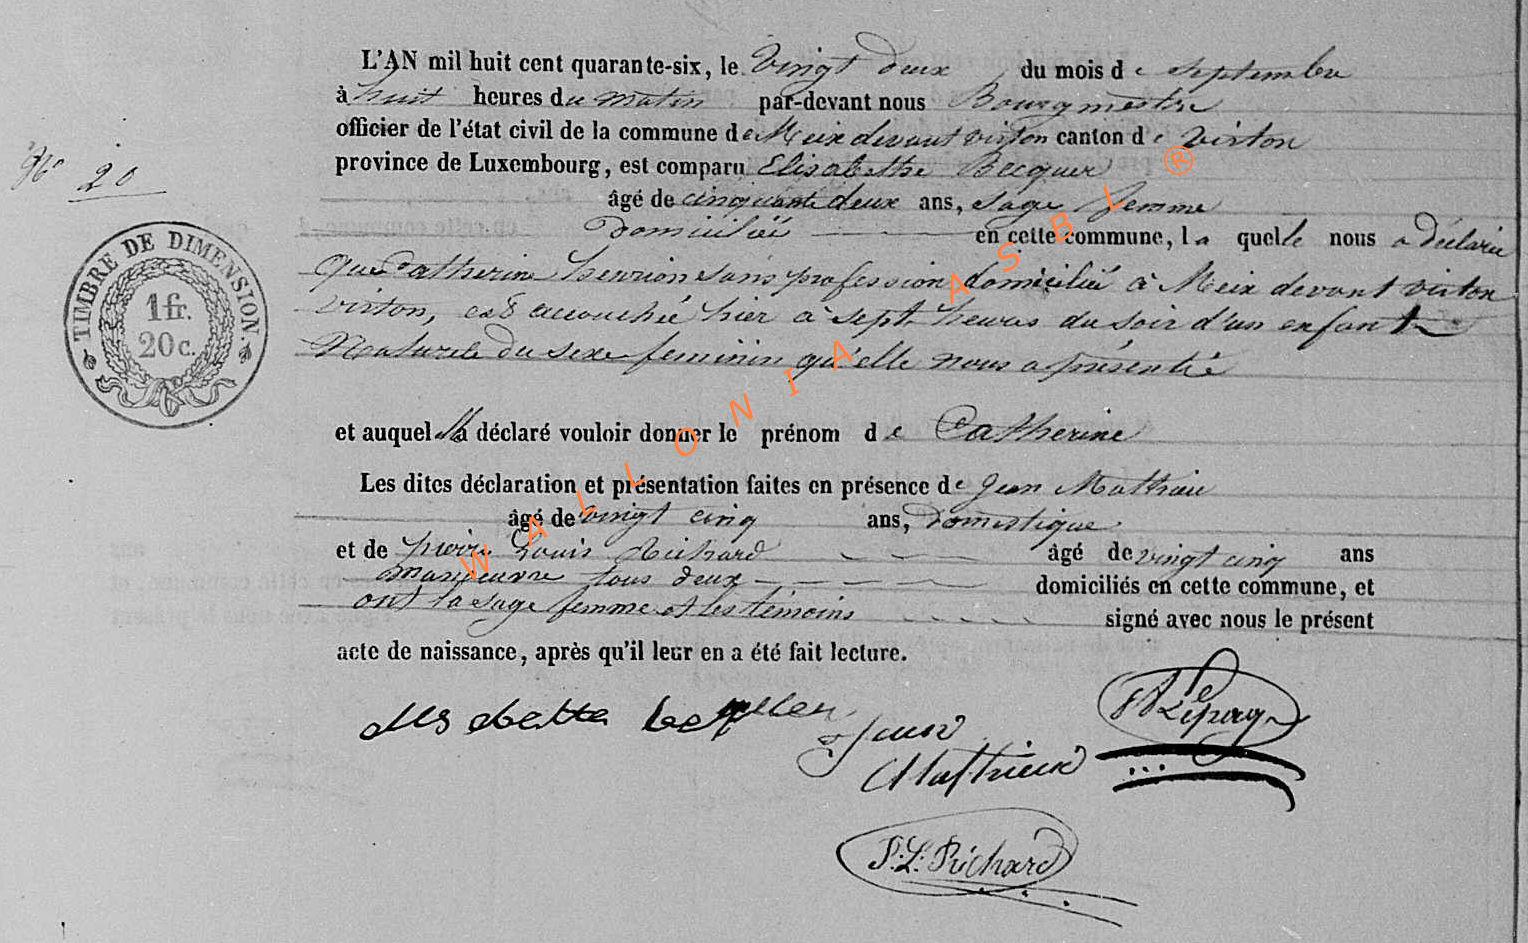 L'AN mil huit cent quarante-six, le Vingt deux du mois de septembre
à huit heures du matin par-devant nous Bourgmestre
officier de l'état civil de la commune de Meix devant virton canton de virton
province de Luxembourg, est comparu Elisabethe Becquer
N° 20
âgé de cinquante deux ans, sage femme
Domiciliée en cette commune, la quelle nous a déclarée
que Catherine henrion sans profession domiciliée à Meix devant virton
virton, est accouchée hier à sept heures du soir d'un enfant
Naturele du sexe feminin qu'elle nous a présentée
TIMBRE DE DIMENSION
1 fr.
20 c.
et auquel elle a déclaré vouloir donner le prénom de Catherine
Les dites déclaration et présentation faites en présence de Jean Mathieu
âgé de vingt cinq ans, Domestique
et de pierre Louis Richard âgé de vingt cinq ans
manoeuvre tous deux domiciliés en cette commune, et
ont la sage femme et les témoins signé avec nous le présent
acte de naissance, après qu'il leur en a été fait lecture.
Jean
Mathieux
P. L. Richard
WALLONIA ASBL ®